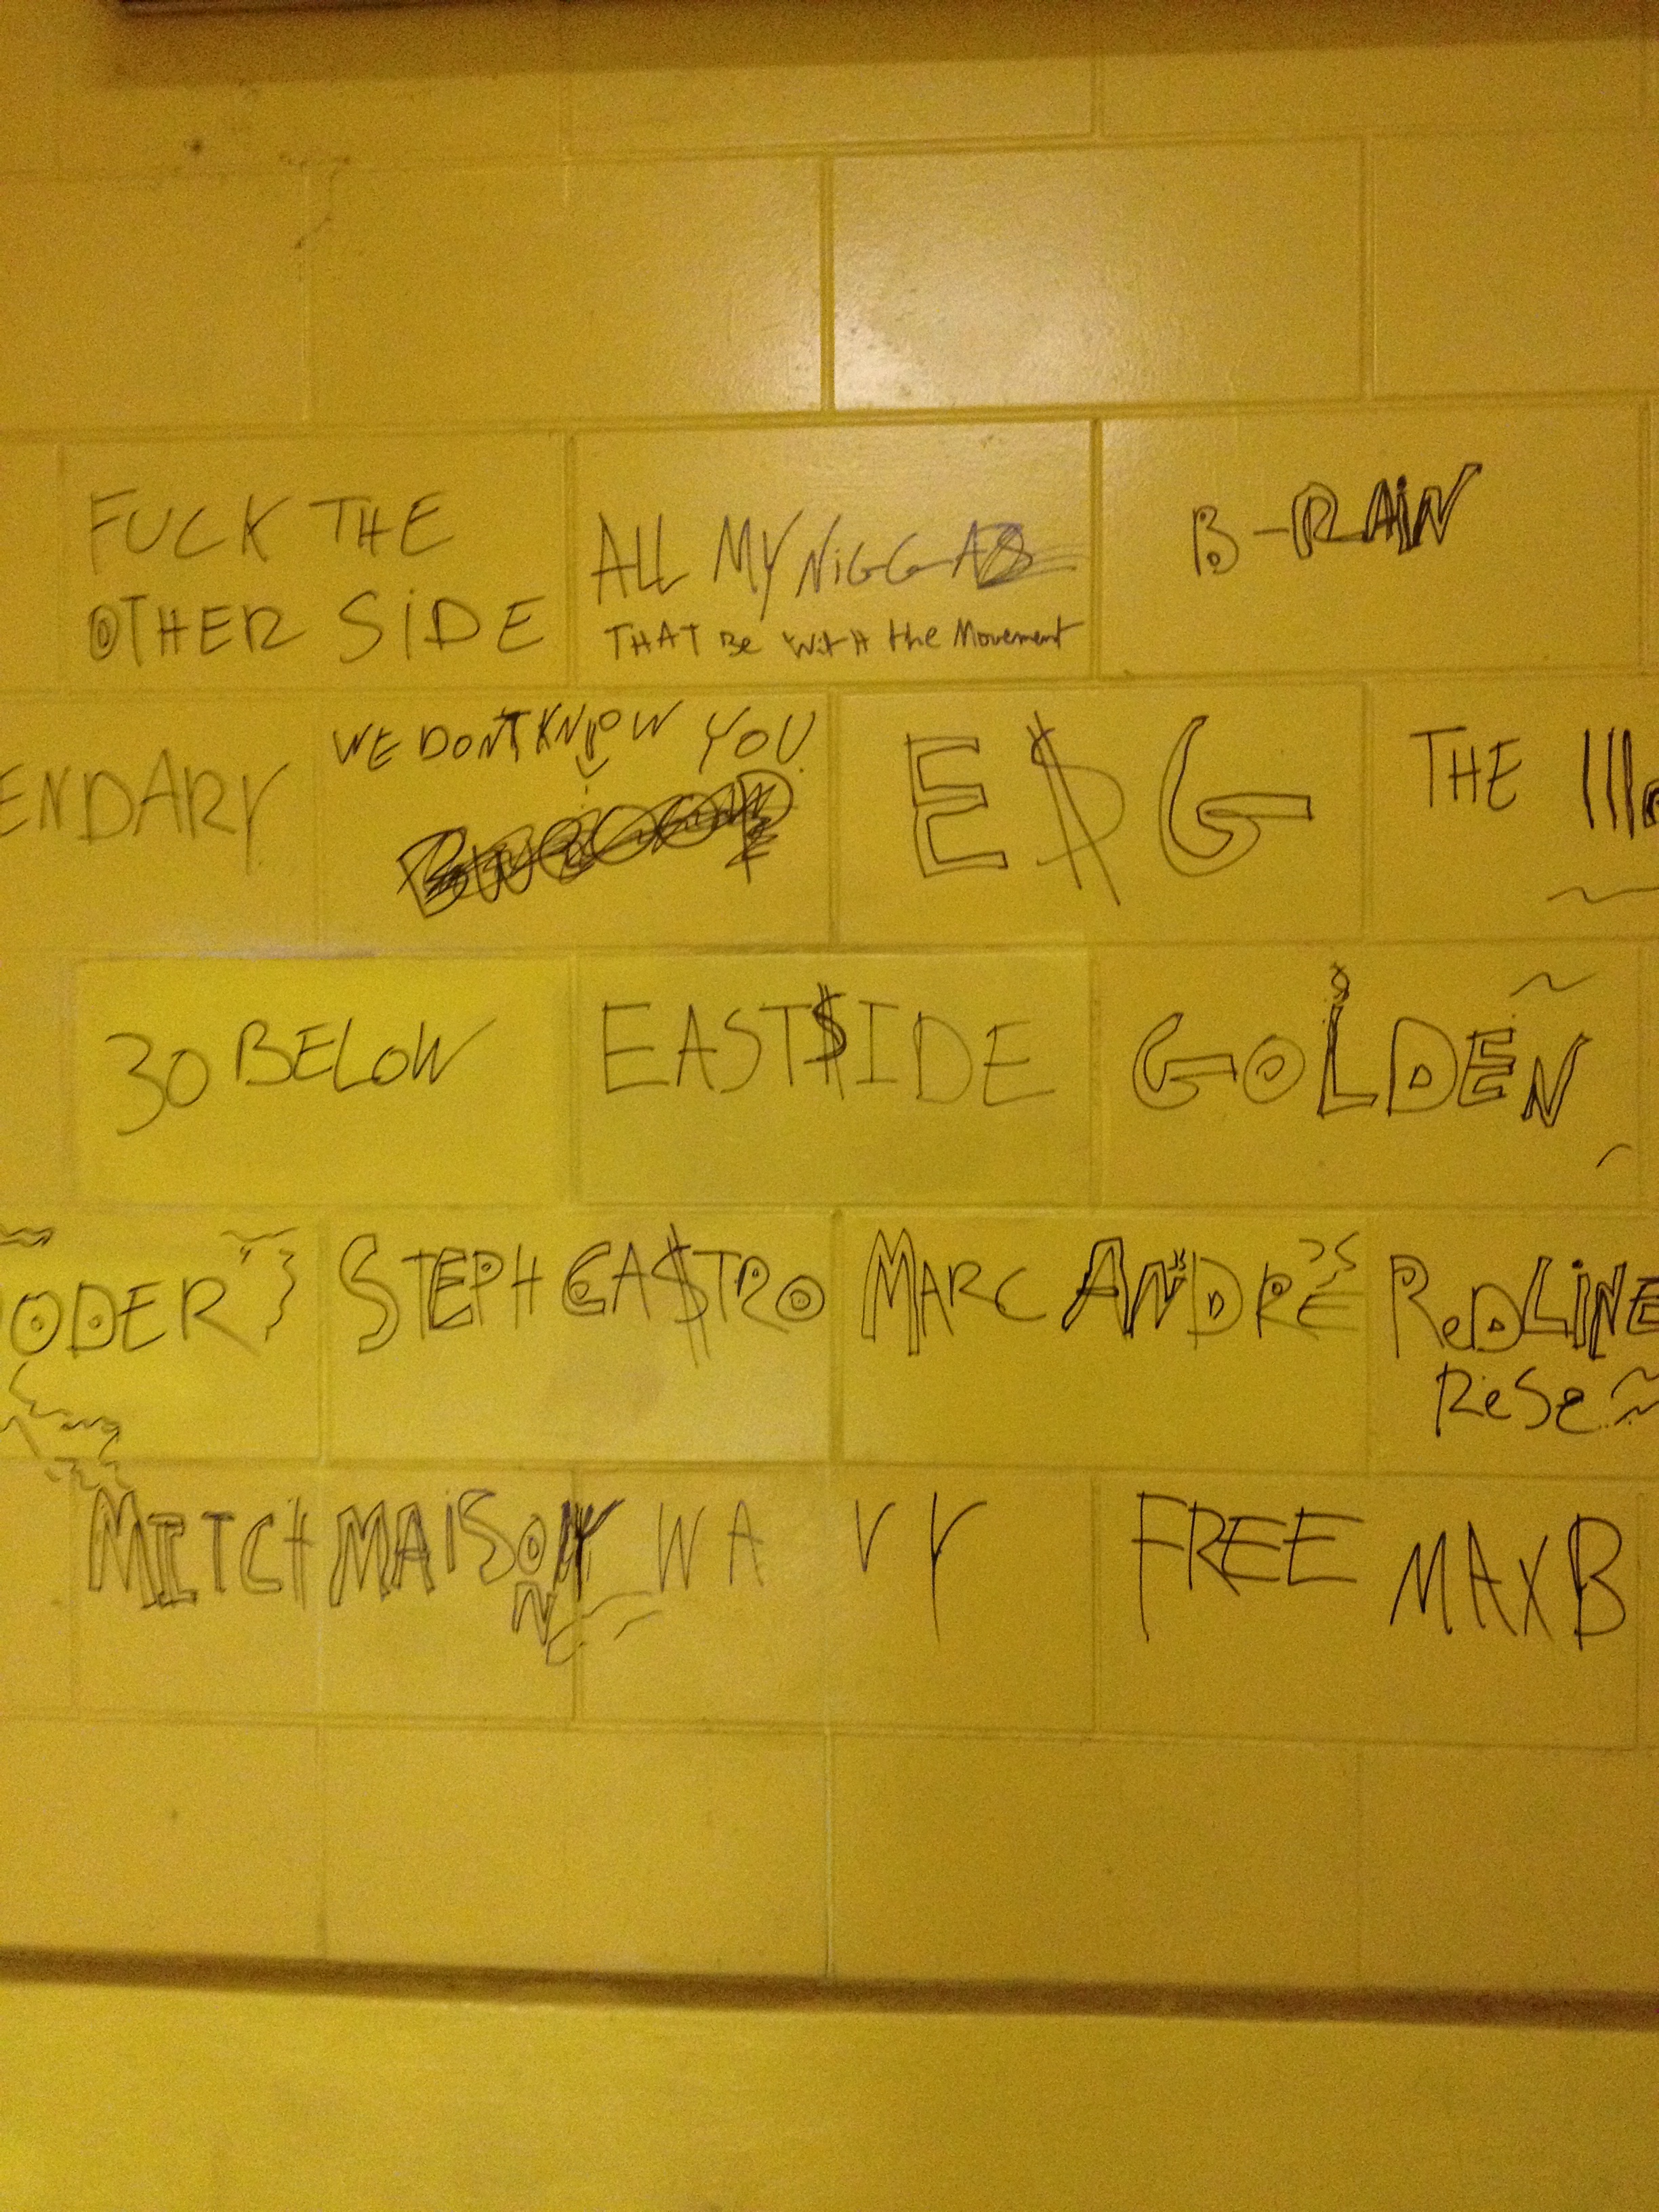 FUCK THE
OTHER SIDE
ALL MY NiGGAS
THAT Be With the Movement
B-RAiN
ENDARY
WE DON'T KNOW YOU
E$G
THE Ill
30 BELOW
EAST$IDE
GOLDEN
ODER
STEPH CA$TRO
MARC ANDRE
ReDLiNE
RiSe
MITCH MAISON
WAVY
FREE MAX B